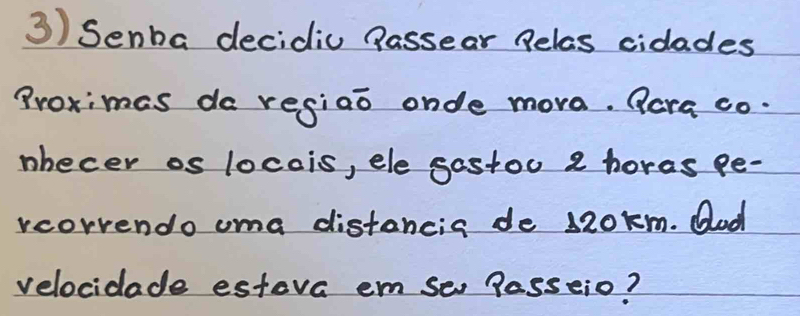 3) Senba decidiu Passear Pelas cidades
Proximas da regiaõ onde mora. Para co-
nhecer os locais, ele gastou 2 horas pe-
rcorrendo uma distancia de 120 km. Qual
velocidade estava em seu Passeio?